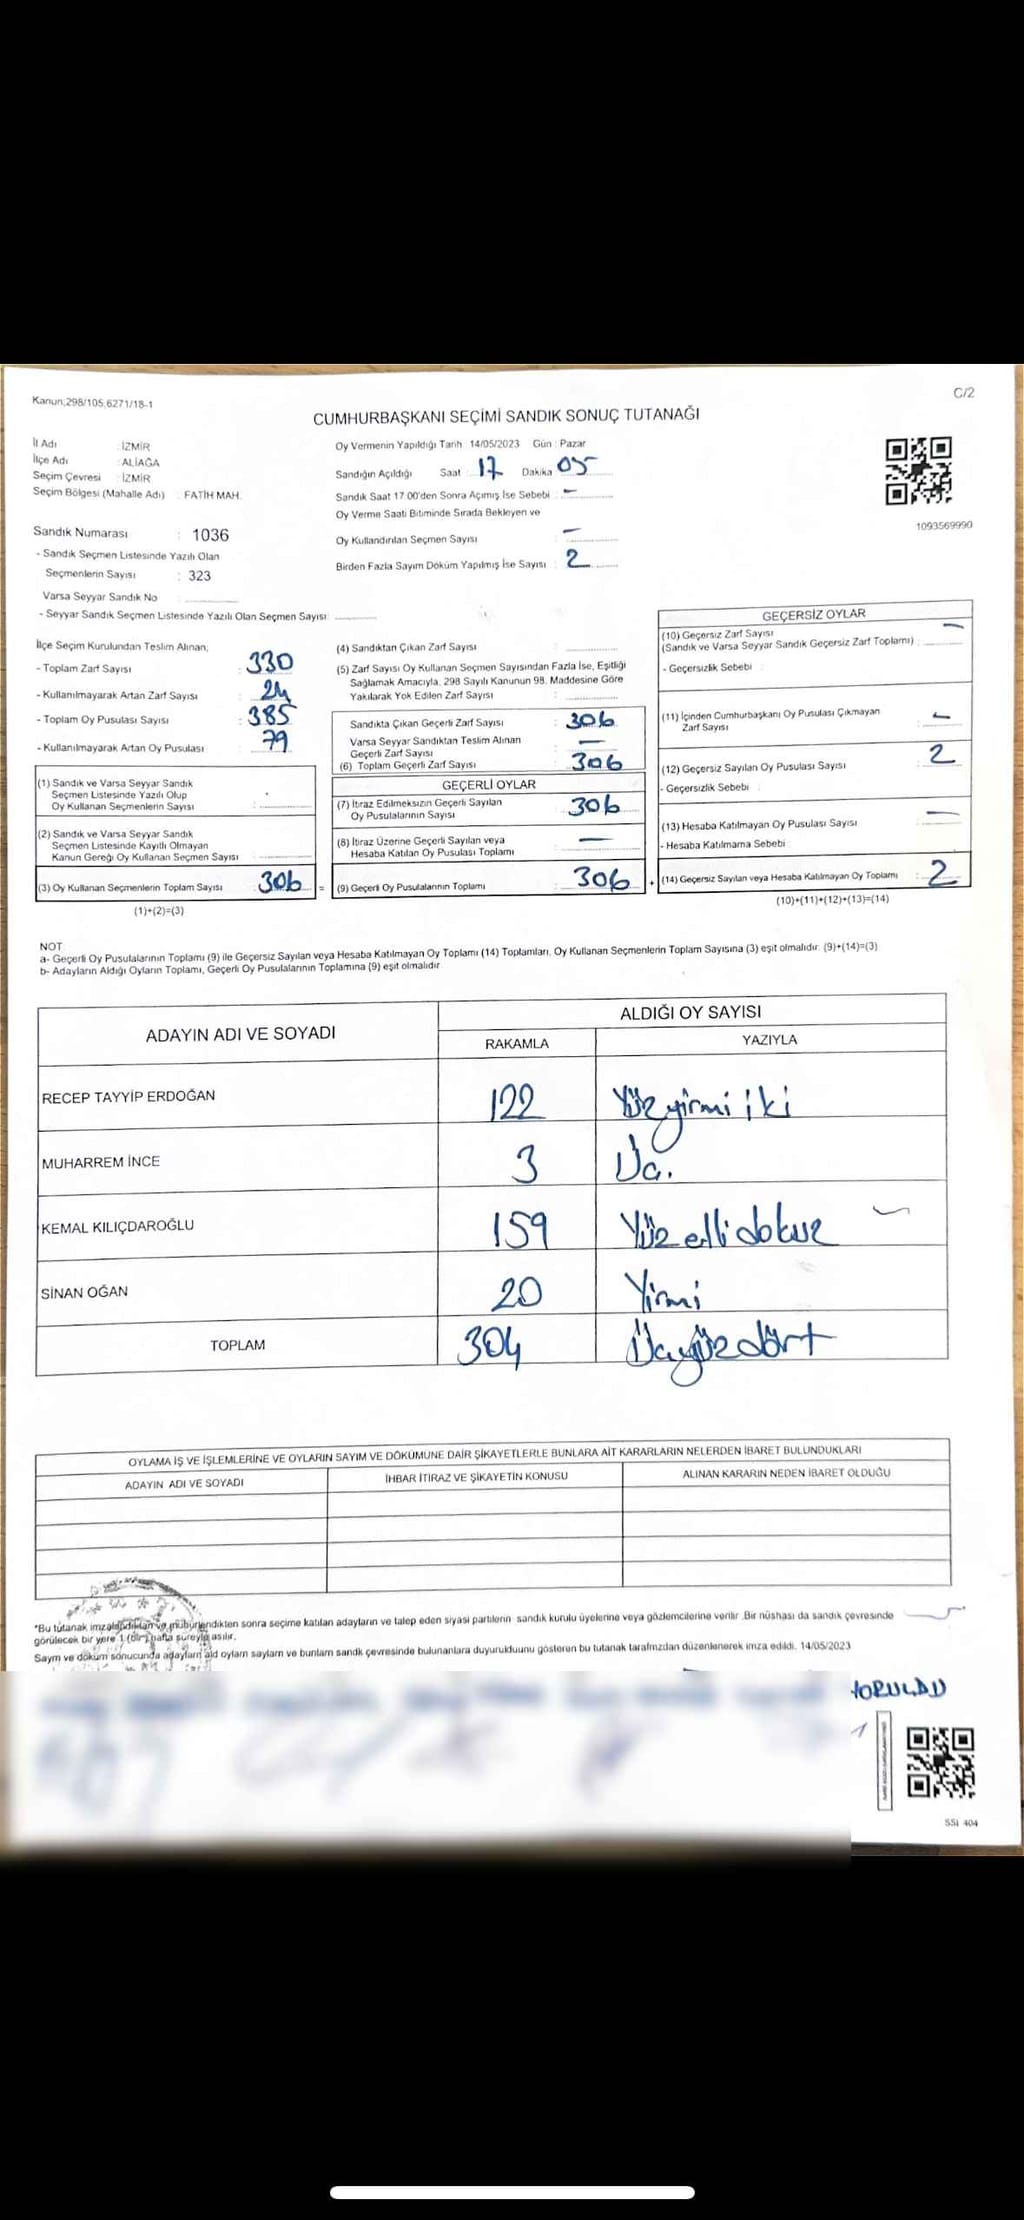 Kanun;298/105,6271/18-1
C/2
CUMHURBAŞKANI SEÇİMİ SANDIK SONUÇ TUTANAĞI
İl Adı : İZMİR
İlçe Adı : ALİAĞA
Seçim Çevresi : İZMİR
Seçim Bölgesi (Mahalle Adı) : FATİH MAH.
Sandık Numarası : 1036
- Sandık Seçmen Listesinde Yazılı Olan
Seçmenlerin Sayısı : 323
Varsa Seyyar Sandık No :
- Seyyar Sandık Seçmen Listesinde Yazılı Olan Seçmen Sayısı:
Oy Vermenin Yapıldığı Tarih : 14/05/2023 Gün : Pazar
Sandığın Açıldığı Saat : 17 Dakika : 05
Sandık Saat 17.00'den Sonra Açımış İse Sebebi : -
Oy Verme Saati Bitiminde Sırada Bekleyen ve
Oy Kullandırılan Seçmen Sayısı : -
Birden Fazla Sayım Döküm Yapılmış İse Sayısı : 2
1093569990
İlçe Seçim Kurulundan Teslim Alınan;
- Toplam Zarf Sayısı : 330
- Kullanılmayarak Artan Zarf Sayısı : 24
- Toplam Oy Pusulası Sayısı : 385
- Kullanılmayarak Artan Oy Pusulası : 79
(1) Sandık ve Varsa Seyyar Sandık
Seçmen Listesinde Yazılı Olup
Oy Kullanan Seçmenlerin Sayısı :
(2) Sandık ve Varsa Seyyar Sandık
Seçmen Listesinde Kayıtlı Olmayan
Kanun Gereği Oy Kullanan Seçmen Sayısı :
(3) Oy Kullanan Seçmenlerin Toplam Sayısı : 306 =
(1)+(2)=(3)
(4) Sandıktan Çıkan Zarf Sayısı :
(5) Zarf Sayısı Oy Kullanan Seçmen Sayısından Fazla İse, Eşitliği
Sağlamak Amacıyla, 298 Sayılı Kanunun 98. Maddesine Göre
Yakılarak Yok Edilen Zarf Sayısı :
Sandıkta Çıkan Geçerli Zarf Sayısı : 306
Varsa Seyyar Sandıktan Teslim Alınan
Geçerli Zarf Sayısı : -
(6) Toplam Geçerli Zarf Sayısı : 306
GEÇERLİ OYLAR
(7) İtiraz Edilmeksizin Geçerli Sayılan
Oy Pusulalarının Sayısı : 306
(8) İtiraz Üzerine Geçerli Sayılan veya
Hesaba Katılan Oy Pusulası Toplamı : -
(9) Geçerli Oy Pusulalarının Toplamı : 306 +
GEÇERSİZ OYLAR
(10) Geçersiz Zarf Sayısı -
(Sandık ve Varsa Seyyar Sandık Geçersiz Zarf Toplamı) :
- Geçersizlik Sebebi :
(11) İçinden Cumhurbaşkanı Oy Pusulası Çıkmayan
Zarf Sayısı : -
(12) Geçersiz Sayılan Oy Pusulası Sayısı : 2
- Geçersizlik Sebebi :
(13) Hesaba Katılmayan Oy Pusulası Sayısı : -
- Hesaba Katılmama Sebebi :
(14) Geçersiz Sayılan veya Hesaba Katılmayan Oy Toplamı : 2
(10)+(11)+(12)+(13)=(14)
NOT
a- Geçerli Oy Pusulalarının Toplamı (9) ile Geçersiz Sayılan veya Hesaba Katılmayan Oy Toplamı (14) Toplamları, Oy Kullanan Seçmenlerin Toplam Sayısına (3) eşit olmalıdır. (9)+(14)=(3)
b- Adayların Aldığı Oyların Toplamı, Geçerli Oy Pusulalarının Toplamına (9) eşit olmalıdır
ADAYIN ADI VE SOYADI
ALDIĞI OY SAYISI
RAKAMLA YAZIYLA
RECEP TAYYİP ERDOĞAN 122 Yüz yirmi iki
MUHARREM İNCE 3 Üç.
KEMAL KILIÇDAROĞLU 159 Yüz elli dokuz
SİNAN OĞAN 20 Yirmi
TOPLAM 304 Üçyüzdört
OYLAMA İŞ VE İŞLEMLERİNE VE OYLARIN SAYIM VE DÖKÜMÜNE DAİR ŞİKAYETLERLE BUNLARA AİT KARARLARIN NELERDEN İBARET BULUNDUKLARI
ADAYIN ADI VE SOYADI İHBAR İTİRAZ VE ŞİKAYETİN KONUSU ALINAN KARARIN NEDEN İBARET OLDUĞU
*Bu tutanak imzalandıktan ve mühürlendikten sonra seçime katılan adayların ve talep eden siyasi partilerin sandık kurulu üyelerine veya gözlemcilerine verilir .Bir nüshası da sandık çevresinde
görülecek bir yere 1 (bir) hafta süreyle asılır.
Sayım ve döküm sonucunda adayların ald oyların sayların ve bunların sandk çevresinde bulunanlara duyurulduunu gösteren bu tutanak tarafmzdan düzenlenerek imza edildi. 14/05/2023
SSİ 404